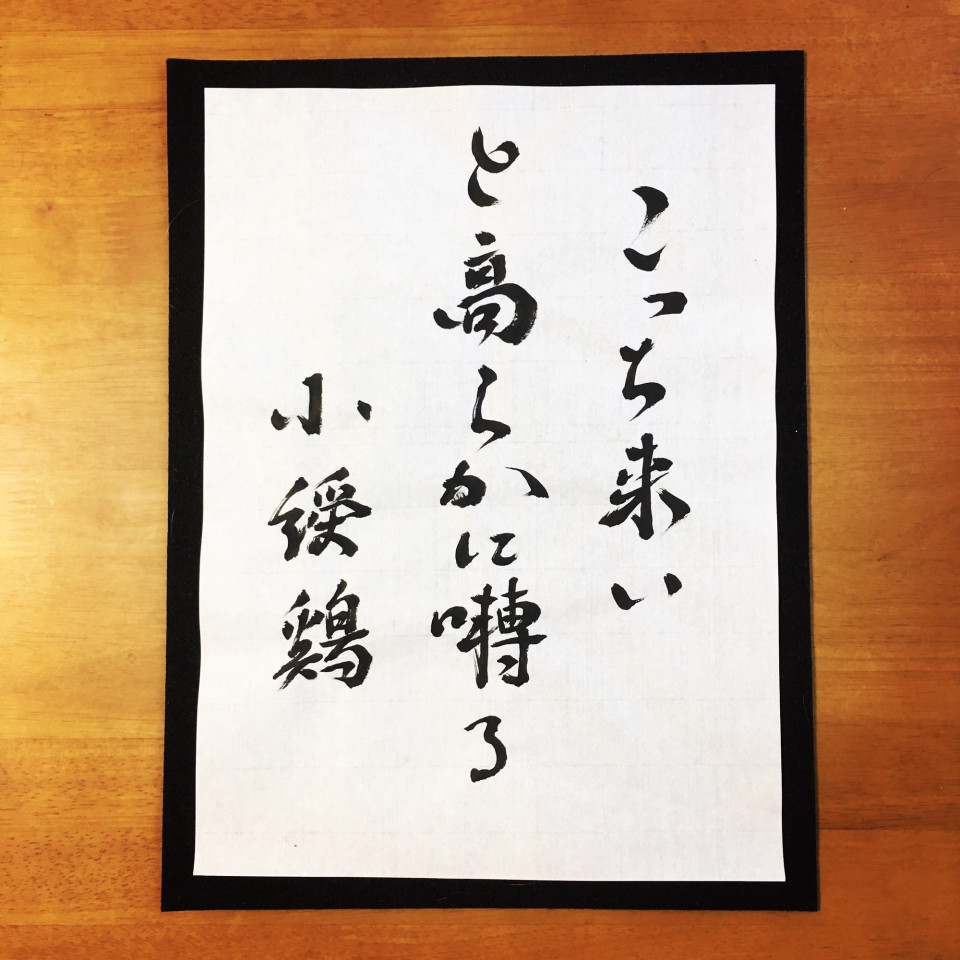 こっち来い
と高らかに囀る
小綬鶏